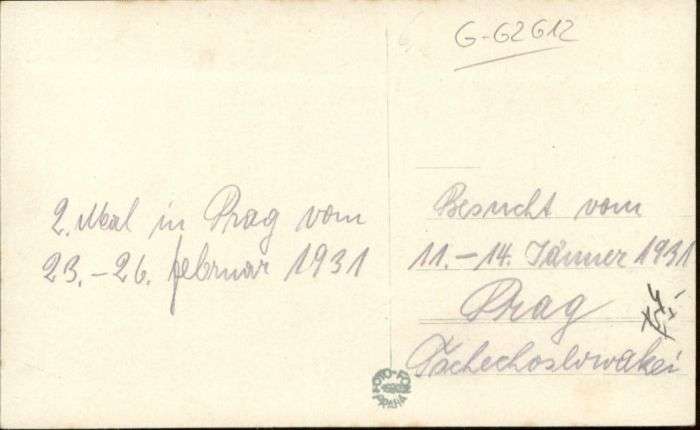 G-G2G12
2. Mal in Prag vom
23.-26. Februar 1931
Besucht vom
11.-14. Jänner 1931
Prag
Tschechoslowakei
FOTO-FON
PRAHA